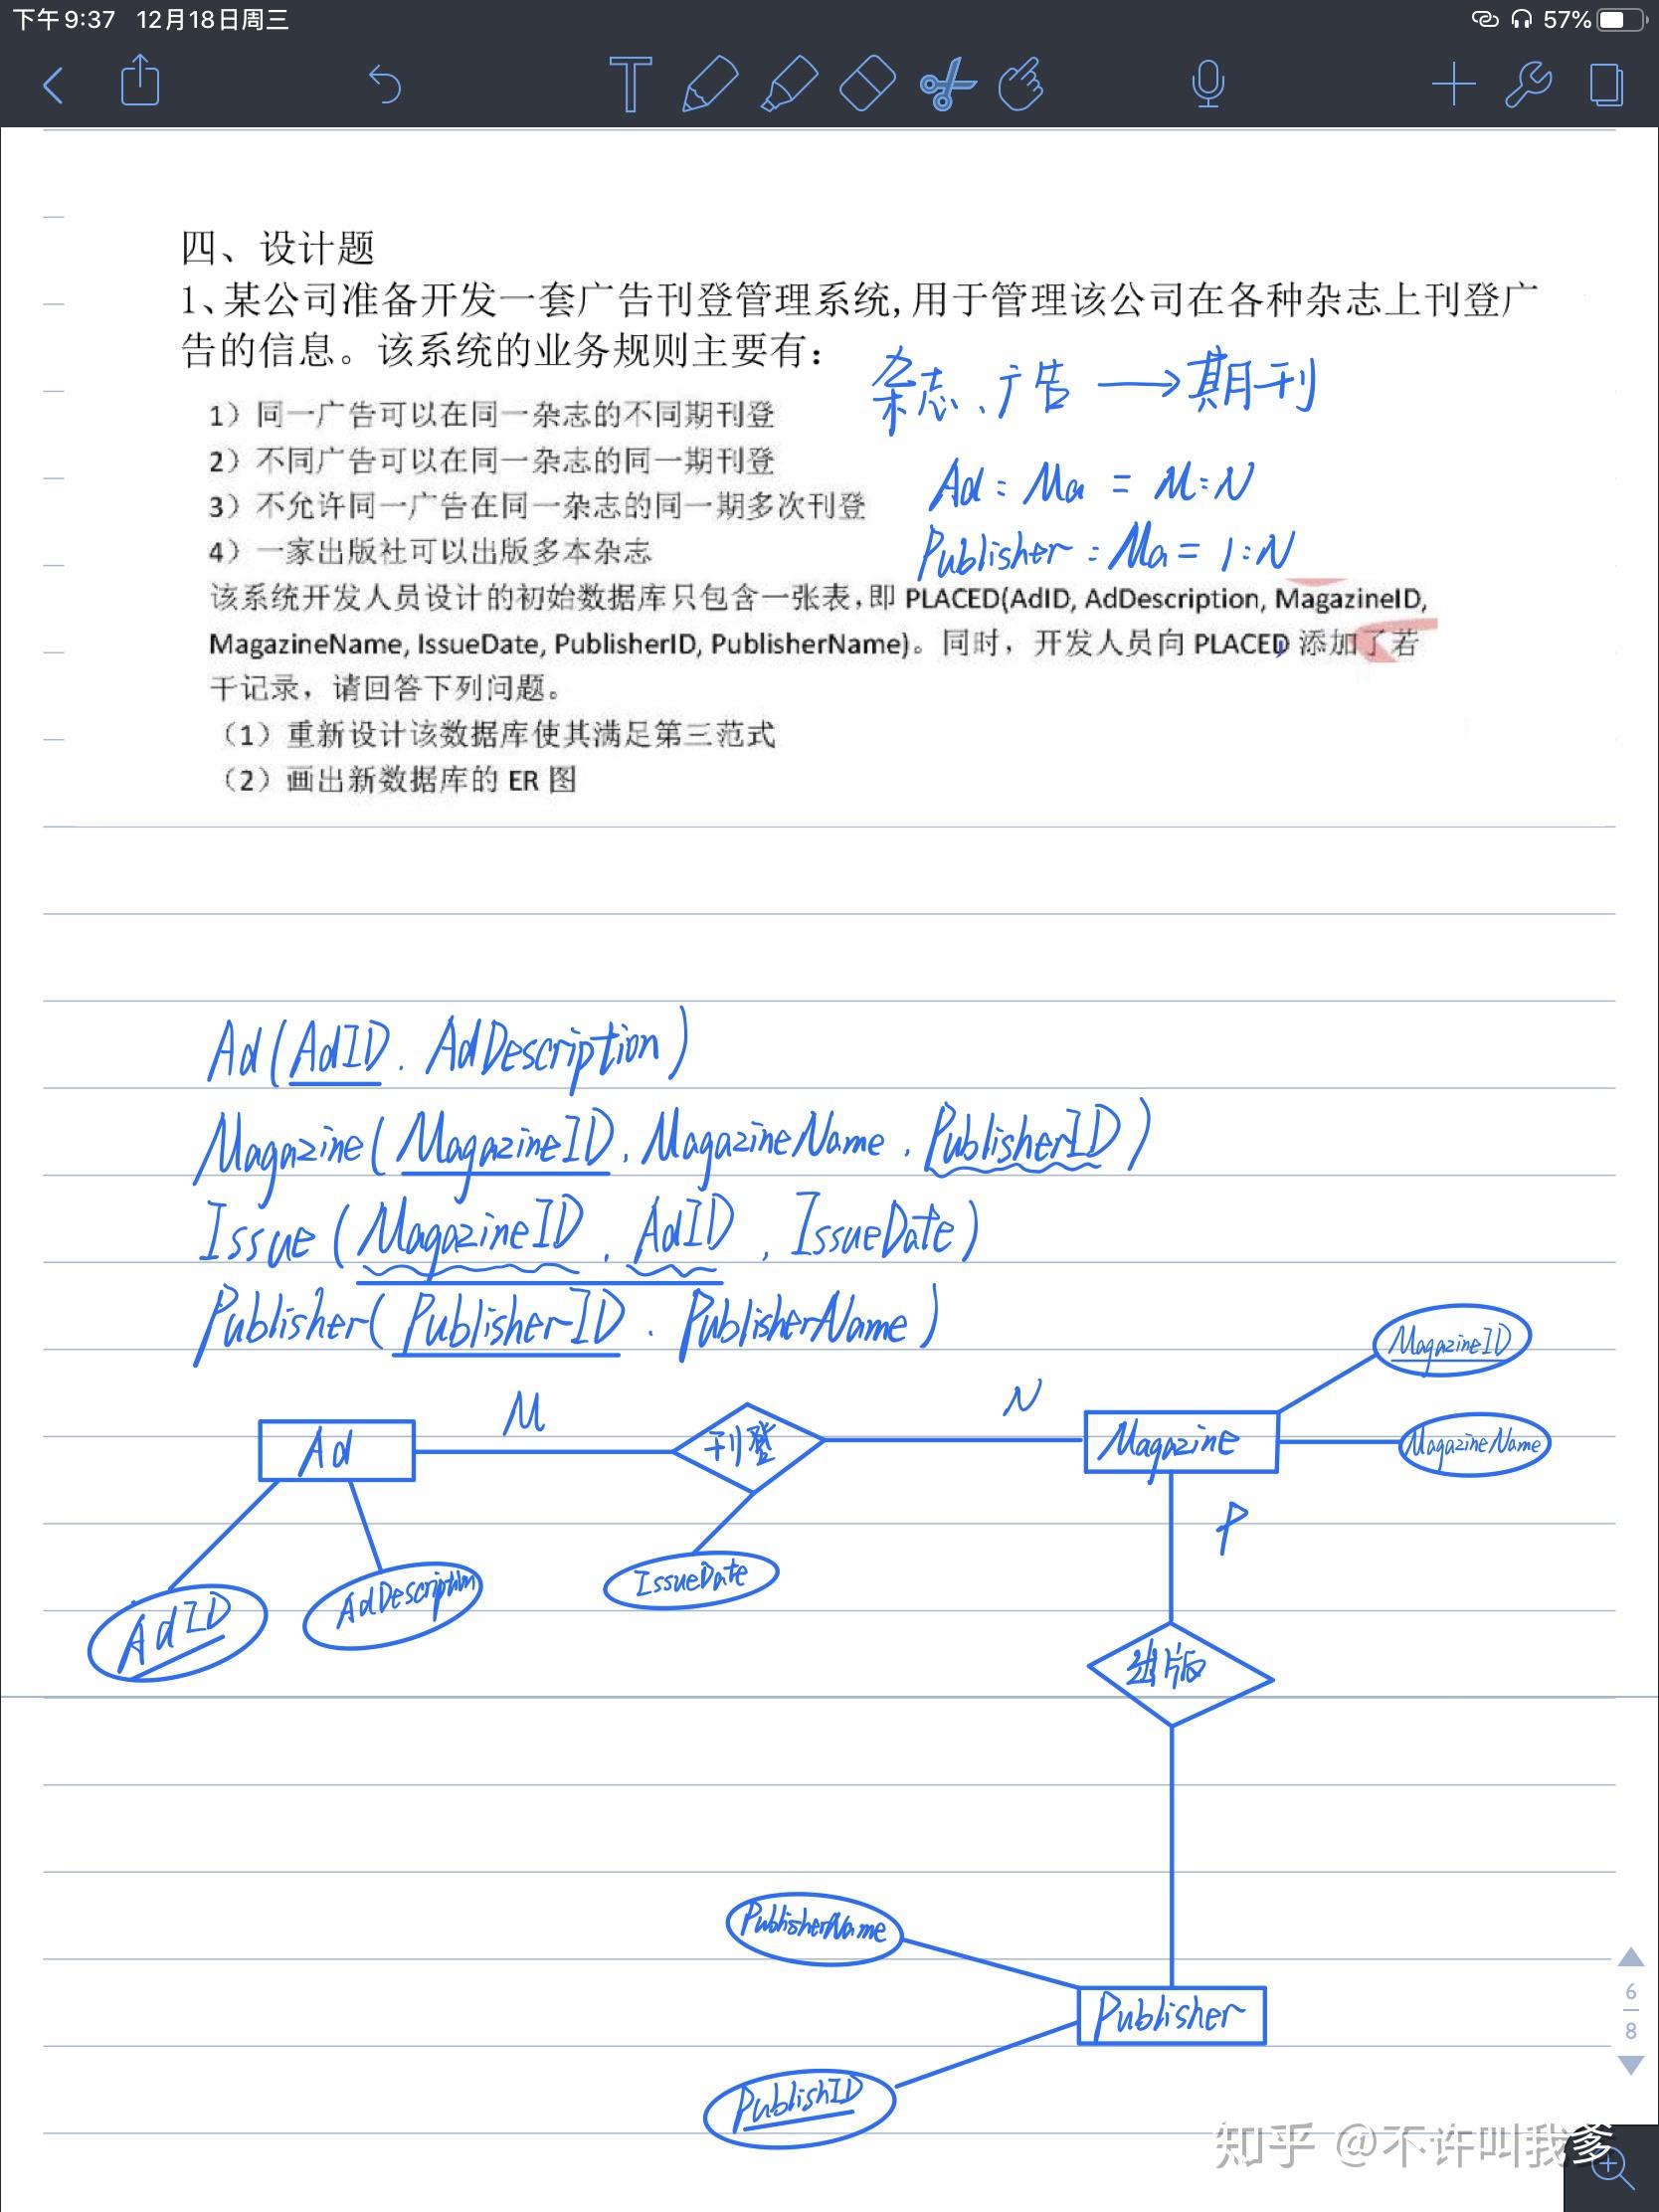 下午9:37 12月18日周三
57%
四、设计题
1、某公司准备开发一套广告刊登管理系统,用于管理该公司在各种杂志上刊登广
告的信息。该系统的业务规则主要有:
杂志、广告 → 期刊
1）同一广告可以在同一杂志的不同期刊登
2）不同广告可以在同一杂志的同一期刊登
Ad : Ma = M:N
3）不允许同一广告在同一杂志的同一期多次刊登
4）一家出版社可以出版多本杂志
Publisher : Ma = 1:N
该系统开发人员设计的初始数据库只包含一张表,即 PLACED(AdID, AdDescription, MagazineID,
MagazineName, IssueDate, PublisherID, PublisherName)。同时，开发人员向 PLACED 添加了若
干记录，请回答下列问题。
（1）重新设计该数据库使其满足第三范式
（2）画出新数据库的 ER 图
Ad(AdID. AdDescription)
Magazine(MagazineID, MagazineName, PublisherID)
Issue(MagazineID, AdID, IssueDate)
Publisher(PublisherID. PublisherName)
MagazineID
M
N
Ad
刊登
Magazine
MagazineName
P
AdID
AdDescription
IssueDate
出版
PublisherName
Publisher
PublishID
6
8
知乎 @不许叫我爹